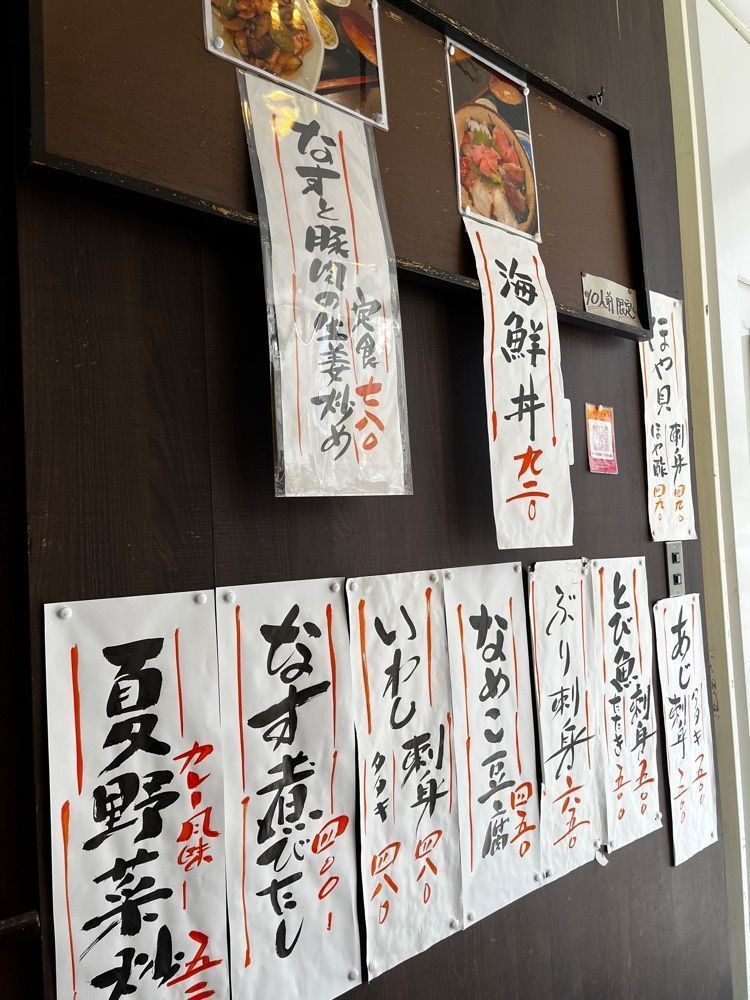 なすと豚肉の生姜炒め
定食
七八〇
海鮮丼
九二〇
10人前限定
ほや貝
刺身 四九〇
ほや酢 四九〇
夏野菜炒
カレー風味
五二
なす煮びたし
四〇〇
いわし
刺身 四八〇
タタキ 四八〇
なめこ豆腐
四五〇
ぶり刺身
六五〇
とび魚
刺身 五五〇
たたき 五五〇
あじ
タタキ
刺身